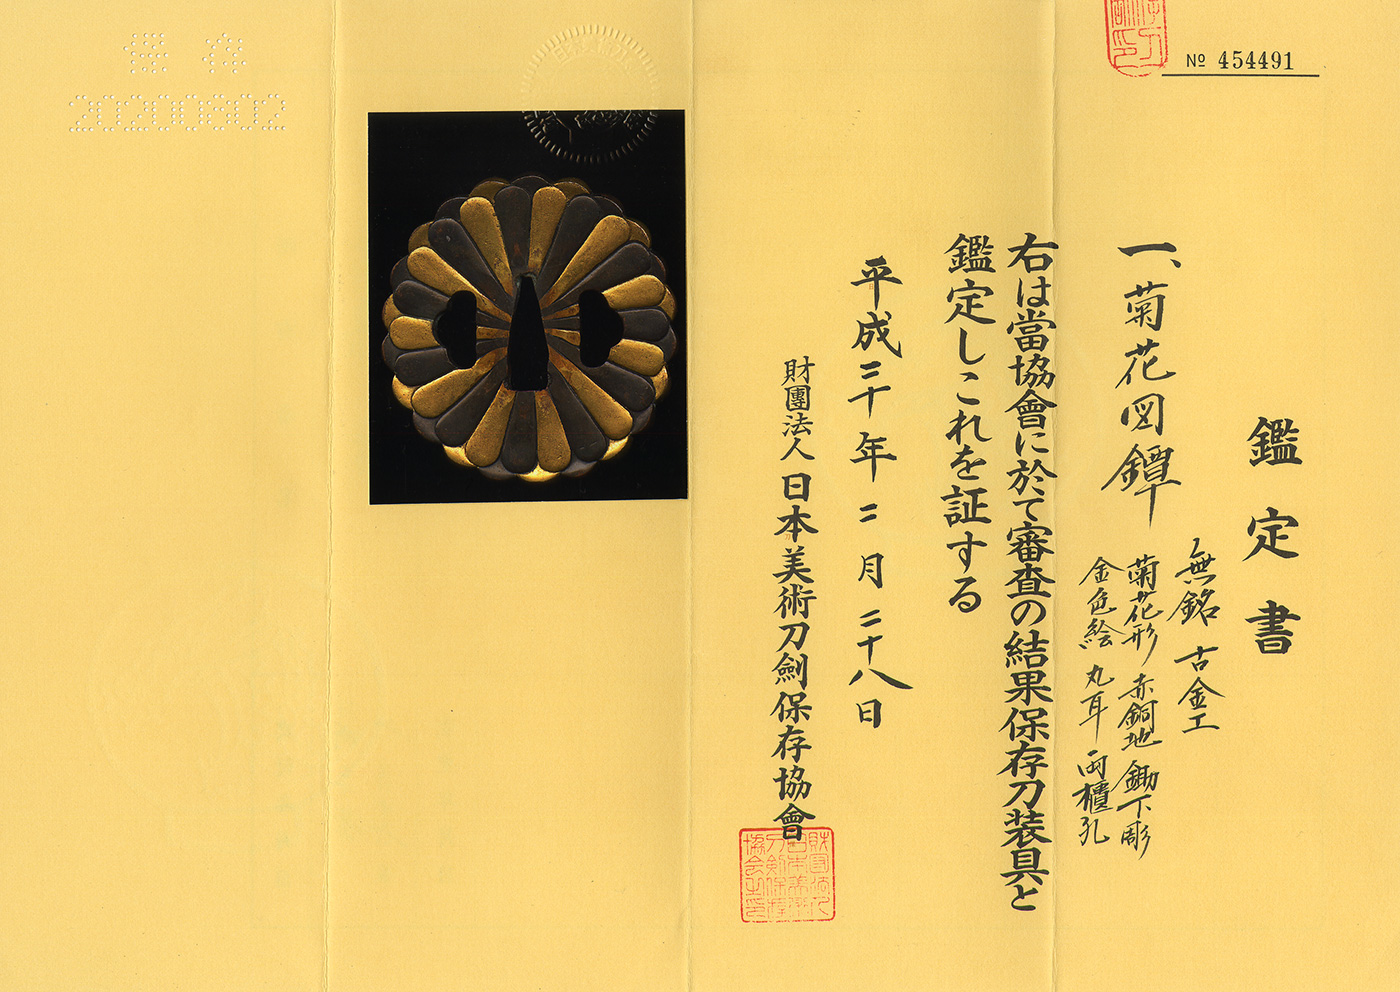 № 454491
鑑定書
一、菊花図鐔
無銘 古金工
菊花形 赤銅地 鋤下彫
金色絵 丸耳 両櫃孔
右は當協會に於て審査の結果保存刀装具と
鑑定しこれを証する
平成二十年二月二十八日
財團法人 日本美術刀劍保存協會
保存
20200802